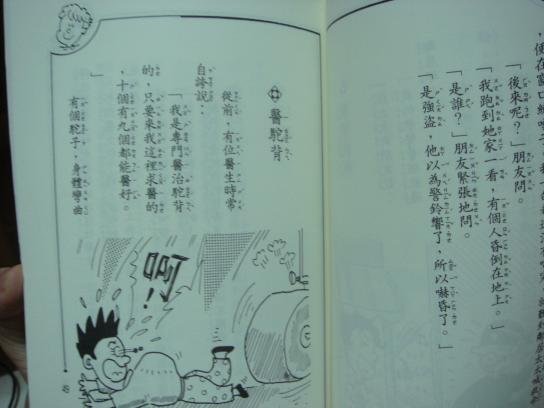 「後來呢？」朋友問。
「我跑到她家一看，有個人昏倒在地上。」
「是誰？」朋友緊張地問。
「是強盜，他以為警鈴響了，所以嚇昏了。」
醫駝背
從前，有位醫生時常
自誇說：
「我是專門醫治駝背
的，只要來我這裡求醫的
，十個有九個都能醫好。
」
有個駝子，身體彎曲
啊！